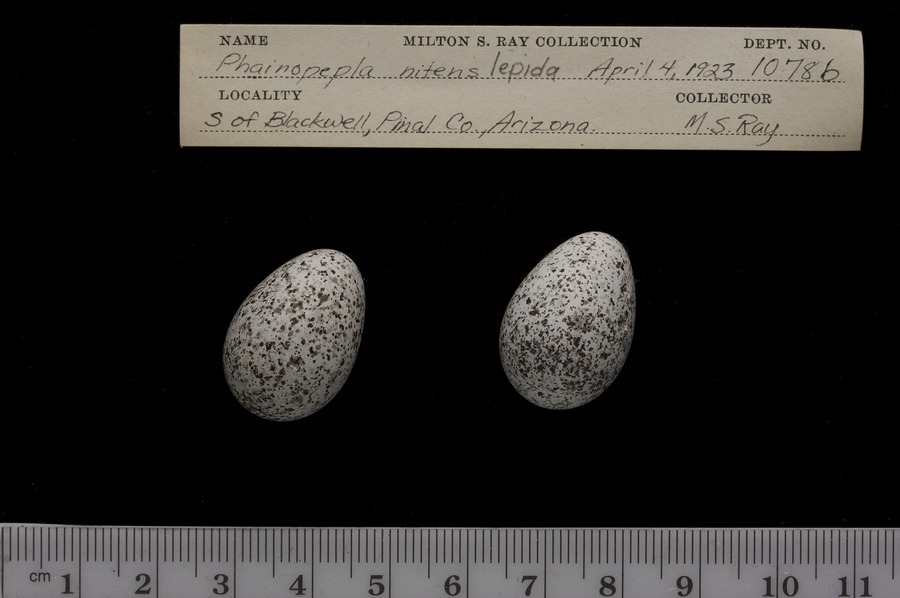 NAME MILTON S. RAY COLLECTION DEPT. NO.
Phainopepla nitens lepida April 4, 1923 10786
LOCALITY COLLECTOR
S of Blackwell, Pinal Co., Arizona. M.S. Ray
cm 1 2 3 4 5 6 7 8 9 10 11